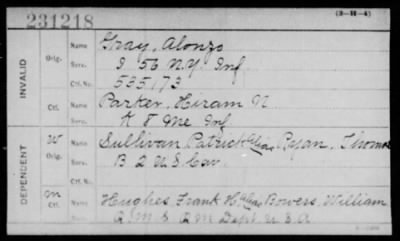 231218 (3-H-4)
INVALID
Orig. Name Gray, Alonzo
Serv. I 56 N.Y. Inf
Ctf. No. 535173
Ctf. Name Parker, Hiram N.
Serv. K 8 Me Inf
DEPENDENT
W Orig. Name Sullivan Patrick Alias Ryan, Thomas
Serv. B 2 U S Cav
Ctf. No.
m Ctf. Name Hughes Frank H Alias Bowers, William
Serv. Q.M.S. Q M Dept U.S.A